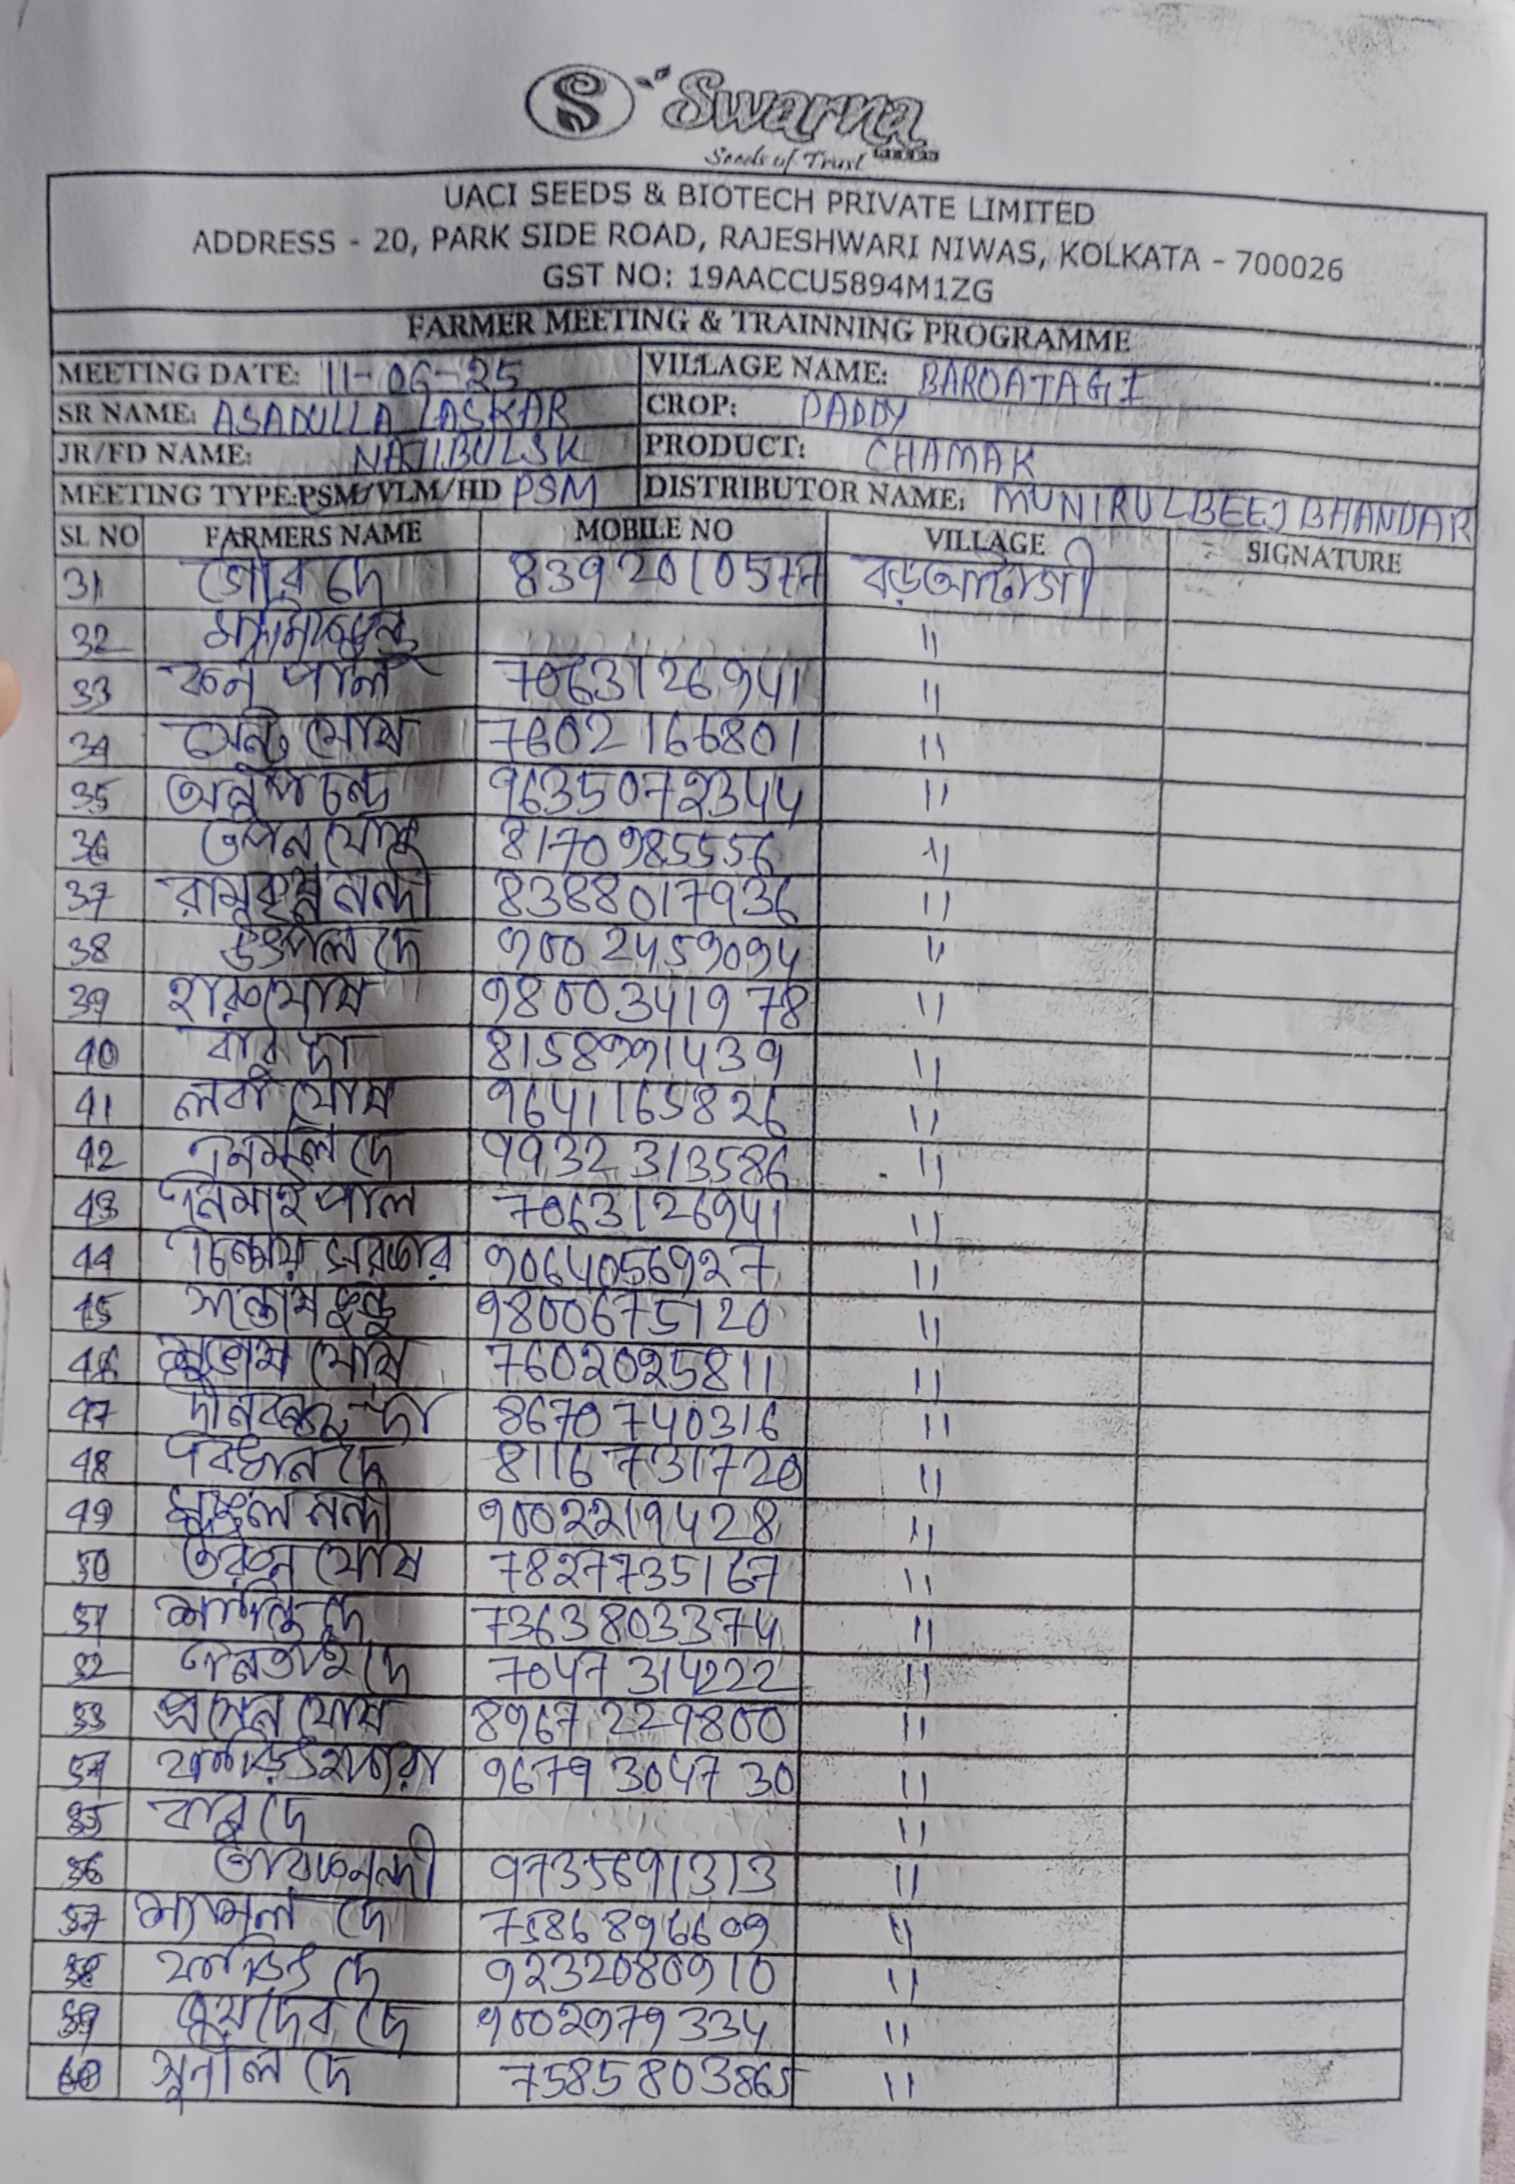 S Swarna
Seeds of Trust
UACI SEEDS & BIOTECH PRIVATE LIMITED
ADDRESS - 20, PARK SIDE ROAD, RAJESHWARI NIWAS, KOLKATA - 700026
GST NO: 19AACCU5894M1ZG
FARMER MEETING & TRAINNING PROGRAMME
MEETING DATE: 11-06-25 VILLAGE NAME: BAROATAGI
SR NAME: ASADULLA LASKAR CROP: PADDY
JR/FD NAME: NAJIBUL SK PRODUCT: CHAMAK
MEETING TYPE:PSM/VLM/HD PSM DISTRIBUTOR NAME: MUNIRUL BEEJ BHANDAR
SL NO FARMERS NAME MOBILE NO VILLAGE SIGNATURE
31 গৌর দে 8392010577 বড়আটাগী
32 "
33 পাল 7063126941 "
34 ঘোষ 7602166801 "
35 অনুপ চন্দ্র 9635072344 "
36 তপন ঘোষ 8170985556 "
37 রামকৃষ্ণ নন্দী 8388017936 "
38 উৎপল দে 9002459094 "
39 হারু ঘোষ 9800341978 "
40 8158991439 "
41 লবা ঘোষ 9641165826 "
42 নির্মল দে 9932313586 "
43 নিমাই পাল 7063126941 "
44 চিন্ময় সরকার 9064056927 "
45 সন্তোষ কুন্ডু 9800675120 "
46 সুভাষ ঘোষ 7602025811 "
47 দীনবন্ধু দা 8670740316 "
48 দে 8116731720 "
49 নন্দী 9002219428 "
50 তরুন ঘোষ 7827735167 "
51 শান্তি দে 7363803374 "
52 নিতাই দে 7047314222 "
53 ঘোষ 8967229800 "
54 9679304730 "
55 বাবু দে "
56 নন্দী 9735691313 "
57 শ্যামল দে 7586896609 "
58 ফড়িং দে 9232080910 "
59 জয়দেব দে 9002979334 "
60 সুনীল দে 7585803865 "